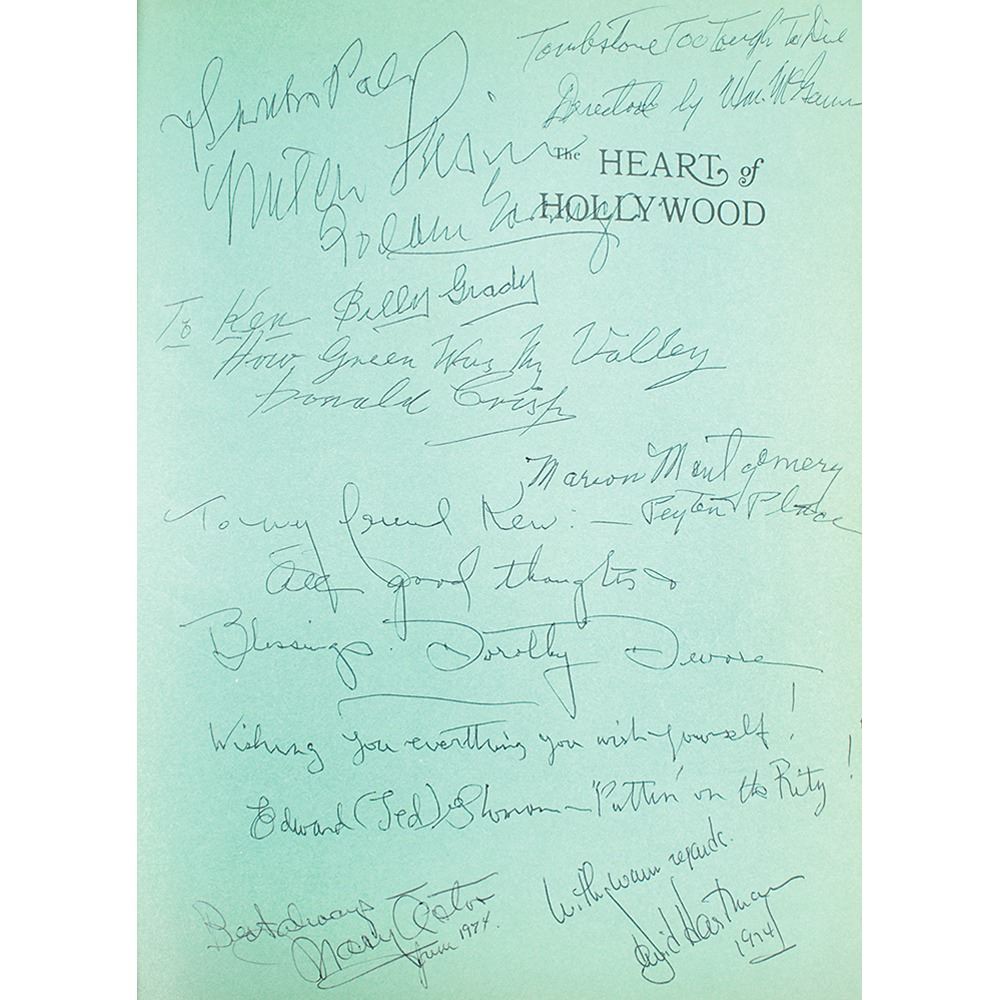 Tombstone Too Tough To Die
Directed by Wm. McGann
The HEART of
HOLLYWOOD
To Ken Billy Grady
How Green Was My Valley
Donald Crisp
Marion Montgomery
Peyton Place
To my friend Ken: —
All good thoughts &
Blessings. Dorothy Devore
Wishing you everthing you wish yourself!
Edward (Ted) "Puttin' on the Ritz!
Best always
Mary Astor
June 1974.
With warm regards.
David Hartman
1974